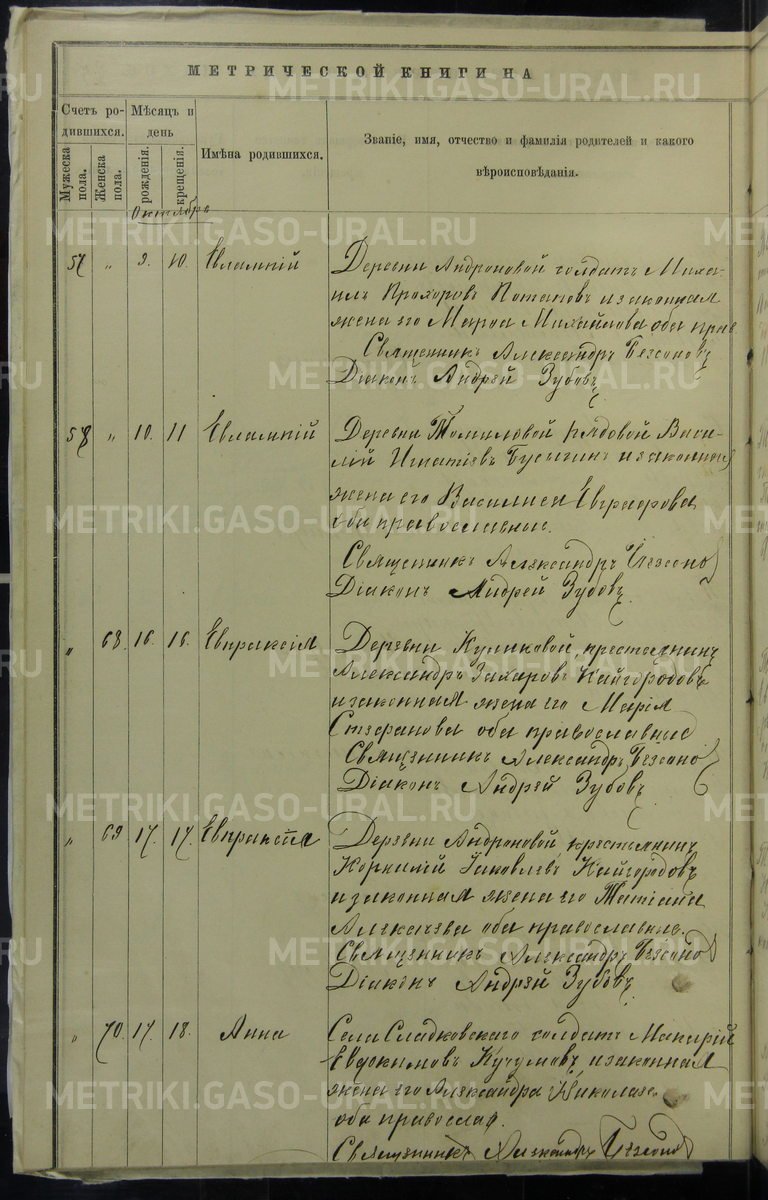 МЕТРИЧЕСКОЙ КНИГИ НА
Счетъ родившихся.
Мужеска пола.
Женска пола.
Мѣсяцъ и день
рожденія.
крещенія.
Имѣна родившихся.
Званіе, имя, отчество и фамилія родителей и какого
вѣроисповѣданія.
Октябрь
57 " 9. 10. Евлампій
Деревни Андроновой солдатъ Миха-
илъ Прохоровъ Потаповъ и законная
жена его Марѳа Михайлова оба прав
Священникъ Александръ Безсоновъ
Діаконъ Андрей Зубовъ
58 " 10. 11 Евлампій
Деревни Томиловой рядовой Васи-
лій Игнатіевъ Бусыгинъ и законная
жена его Василиса Евграфова
оба православные.
Священникъ Александръ Безсоно
Діаконъ Андрей Зубовъ
" 68. 16. 16. Евпраксія
Деревни Куликовой, крестьянинъ
Александръ Захаровъ Кайгородовъ
и законная жена его Марія
Стефанова оба православные
Священникъ Александръ Безсоно
Діаконъ Андрей Зубовъ
" 69 17. 17. Евпраксія
Деревни Андроновой крестьянинъ
Корнилій Іаковлевъ Кайгородовъ
и законная жена его Татіана
оба православные.
Священникъ Александръ Безсоно
Діаконъ Андрей Зубовъ
" 70. 17. 18. Анна
Села Сладковскаго солдатъ Макарій
Евдокимовъ Кучумовъ и законная
жена его Александра Николаев.
оба православ.
Священникъ Александръ Безсоно
METRIKI.GASO-URAL.RU